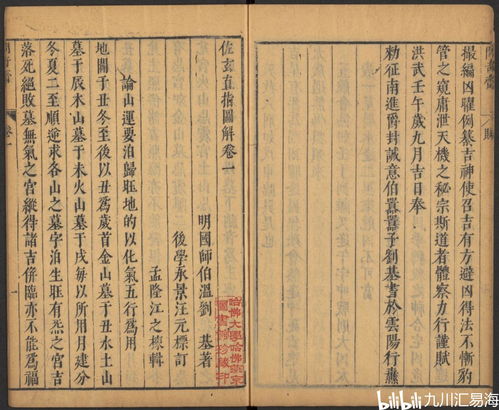 撮編凶曜例纂吉神使召吉有方避凶得法不慚豹
管之窺庸泄天機之秘宗斯道者體察力行謹賦
洪武壬午歲九月吉日奉
勑征南進爵封誠意伯囂囂子劉基書於雲陽行廡
佐玄直指圖解卷一
明國師伯溫劉 基著
後學永景汪元標訂
孟隆江之棟輯
論山運要泊歸旺地的以化氣五行爲用
地闢于丑冬至後以丑爲歲首金山墓于丑水土山
墓于辰木山墓于未火山墓于戌每以所用月建分
冬夏二至順逆求各山之墓字泊生旺有炁之宮吉
落死絕敗墓無氣之宮縱得諸吉併臨亦不能爲福
卷一
哈佛大學哈佛燕京
圖書館珍藏印
bilibili 九川汇易海